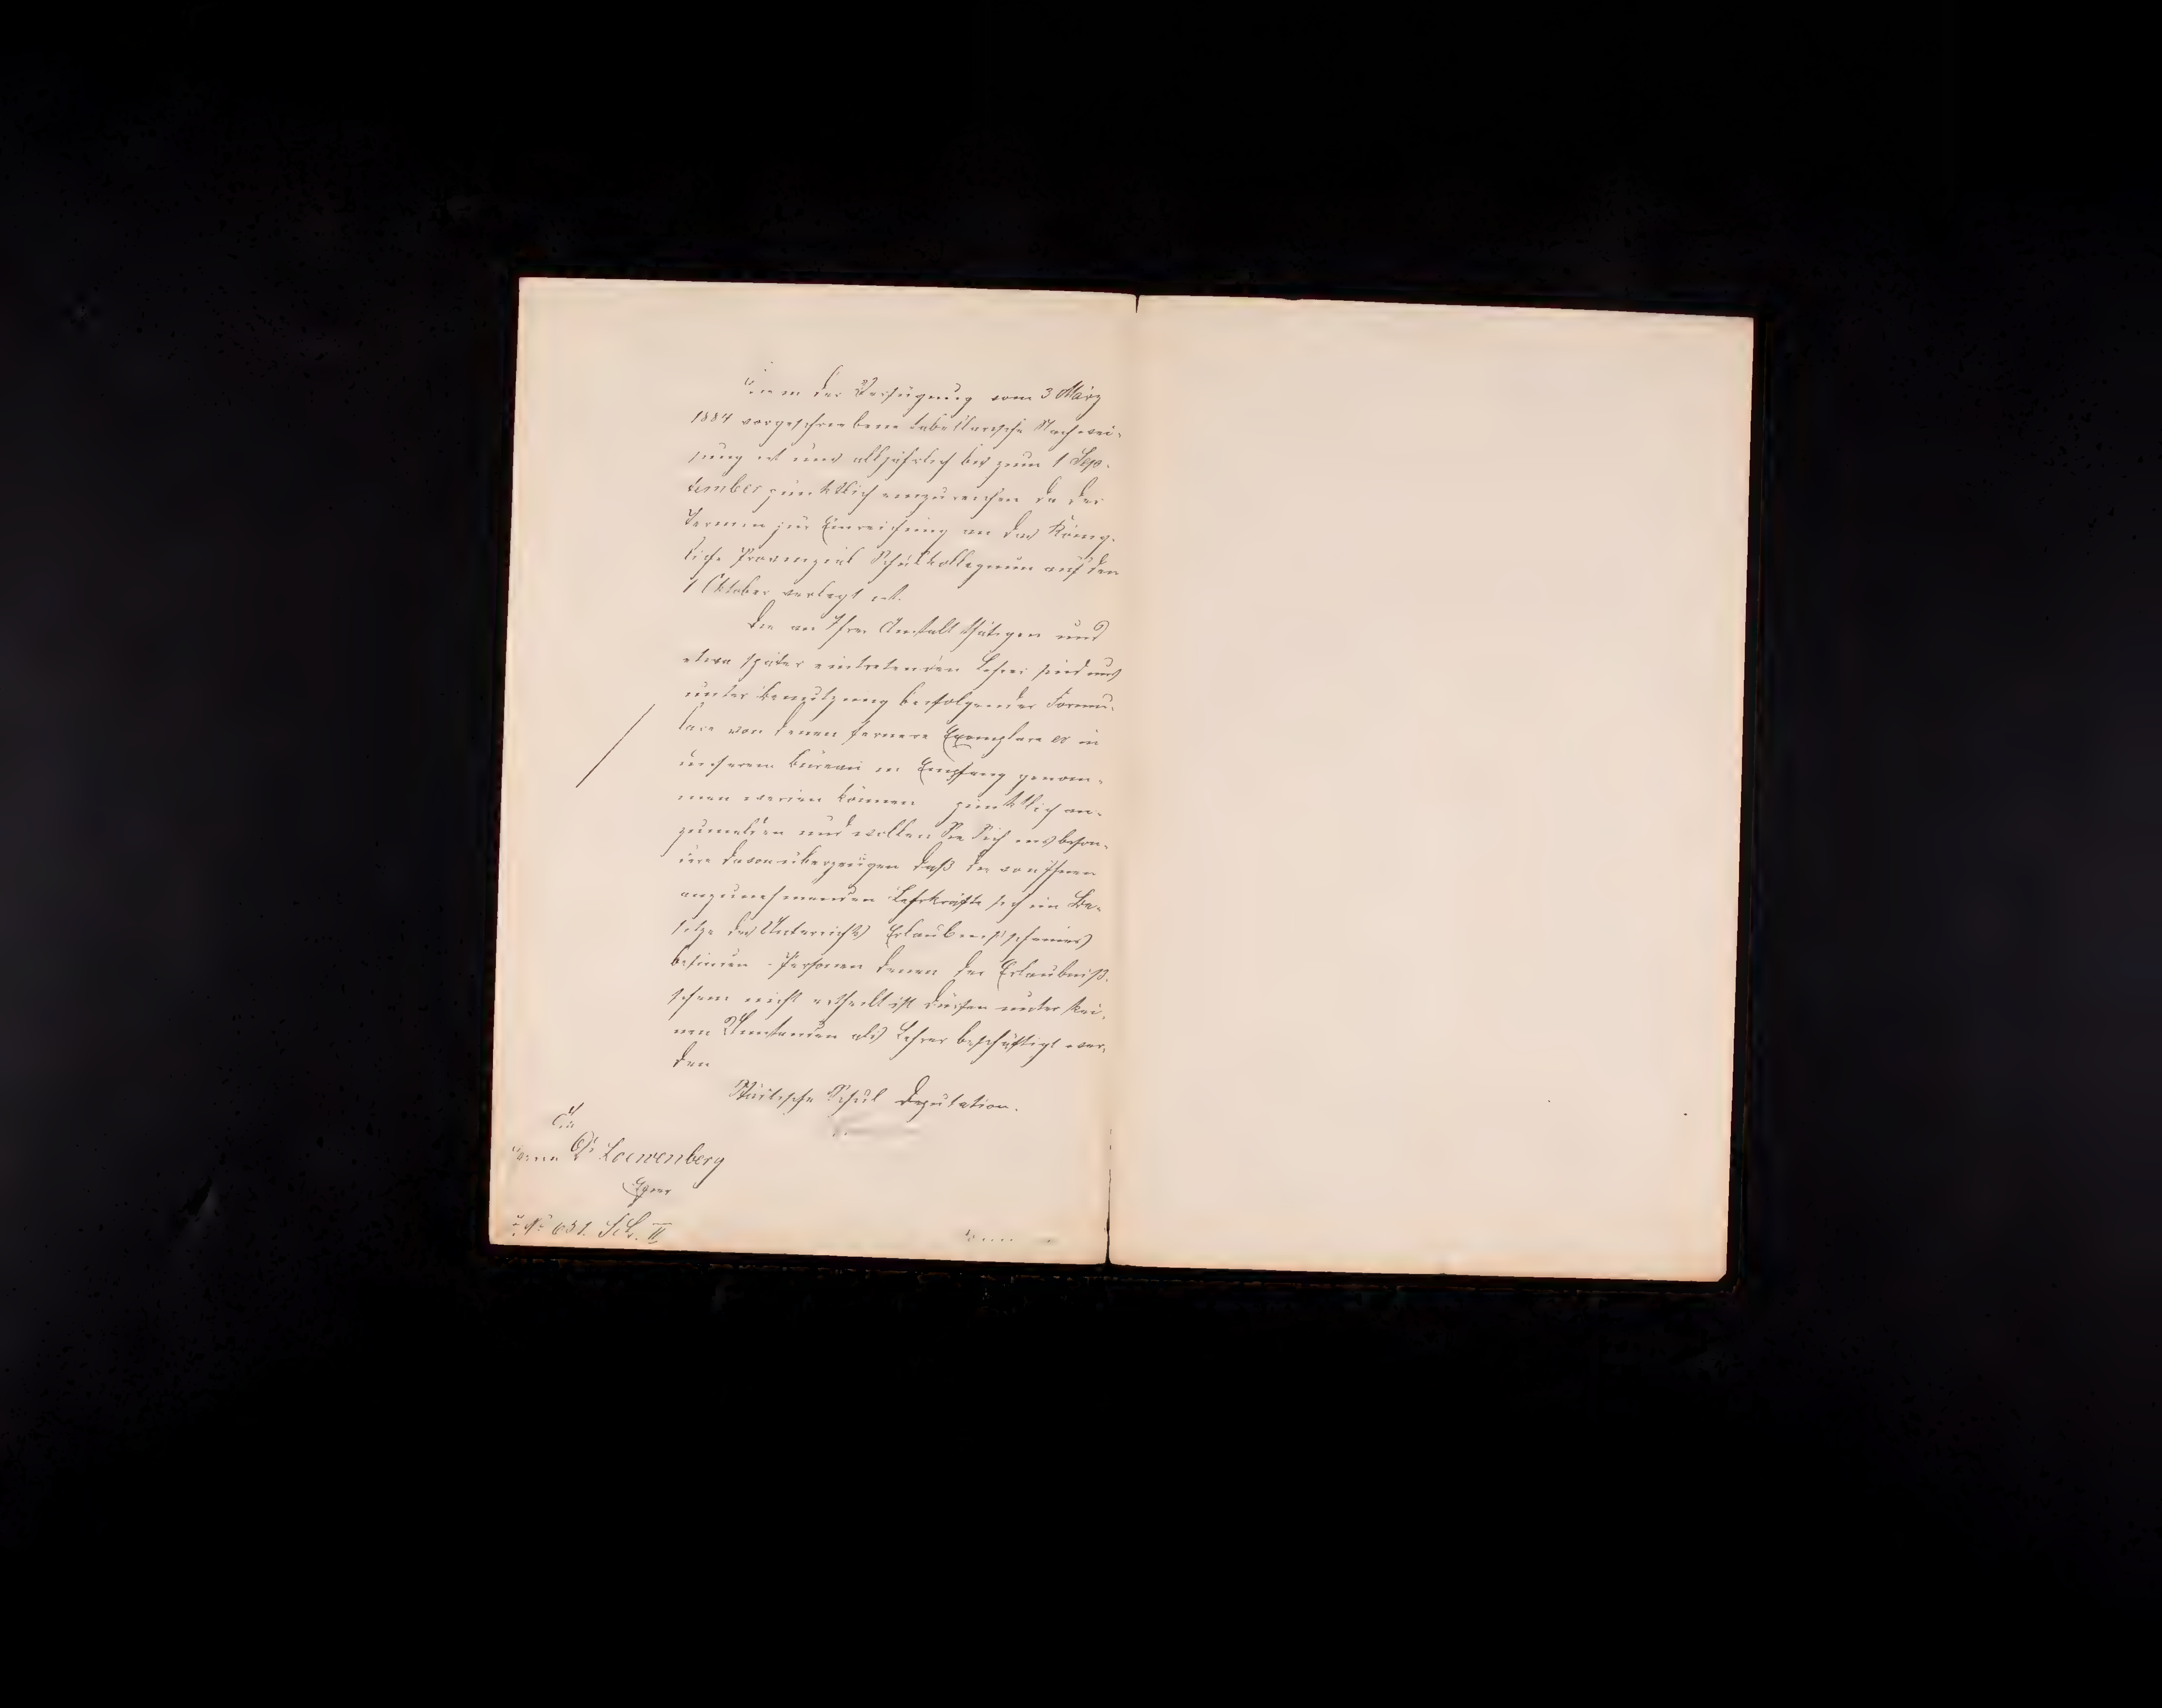 Die in der Verfügung vom 3 März
1884 vorgeschriebene tabellarische Nachwei-
sung ist uns alljährlich bis zum 1 Sep-
tember pünktlich einzureichen da der
Termin zur Einreichung an das König-
liche Provinzial Schulkollegium auf den
1 Oktober verlegt ist.
Die an Ihrer Anstalt thätigen und
etwa später eintretenden Lehrer sind uns
unter Benutzung beifolgender Formu-
lare von denen fernere Exemplare in
unserem Bureau in Empfang genom-
men werden können pünktlich an-
zumelden und wollen Sie Sich insbeson-
dere davon überzeugen daß die von Ihnen
anzunehmenden Lehrkräfte sich im Be-
sitze des Unterrichts Erlaubnißscheines
befinden - Personen denen der Erlaubniß-
schein nicht ertheilt ist dürfen unter kei-
nen Umständen als Lehrer beschäftigt wer-
den
Städtische Schul Deputation.
An
Herrn Dr Loewenberg
hier
No 651. Sch. II